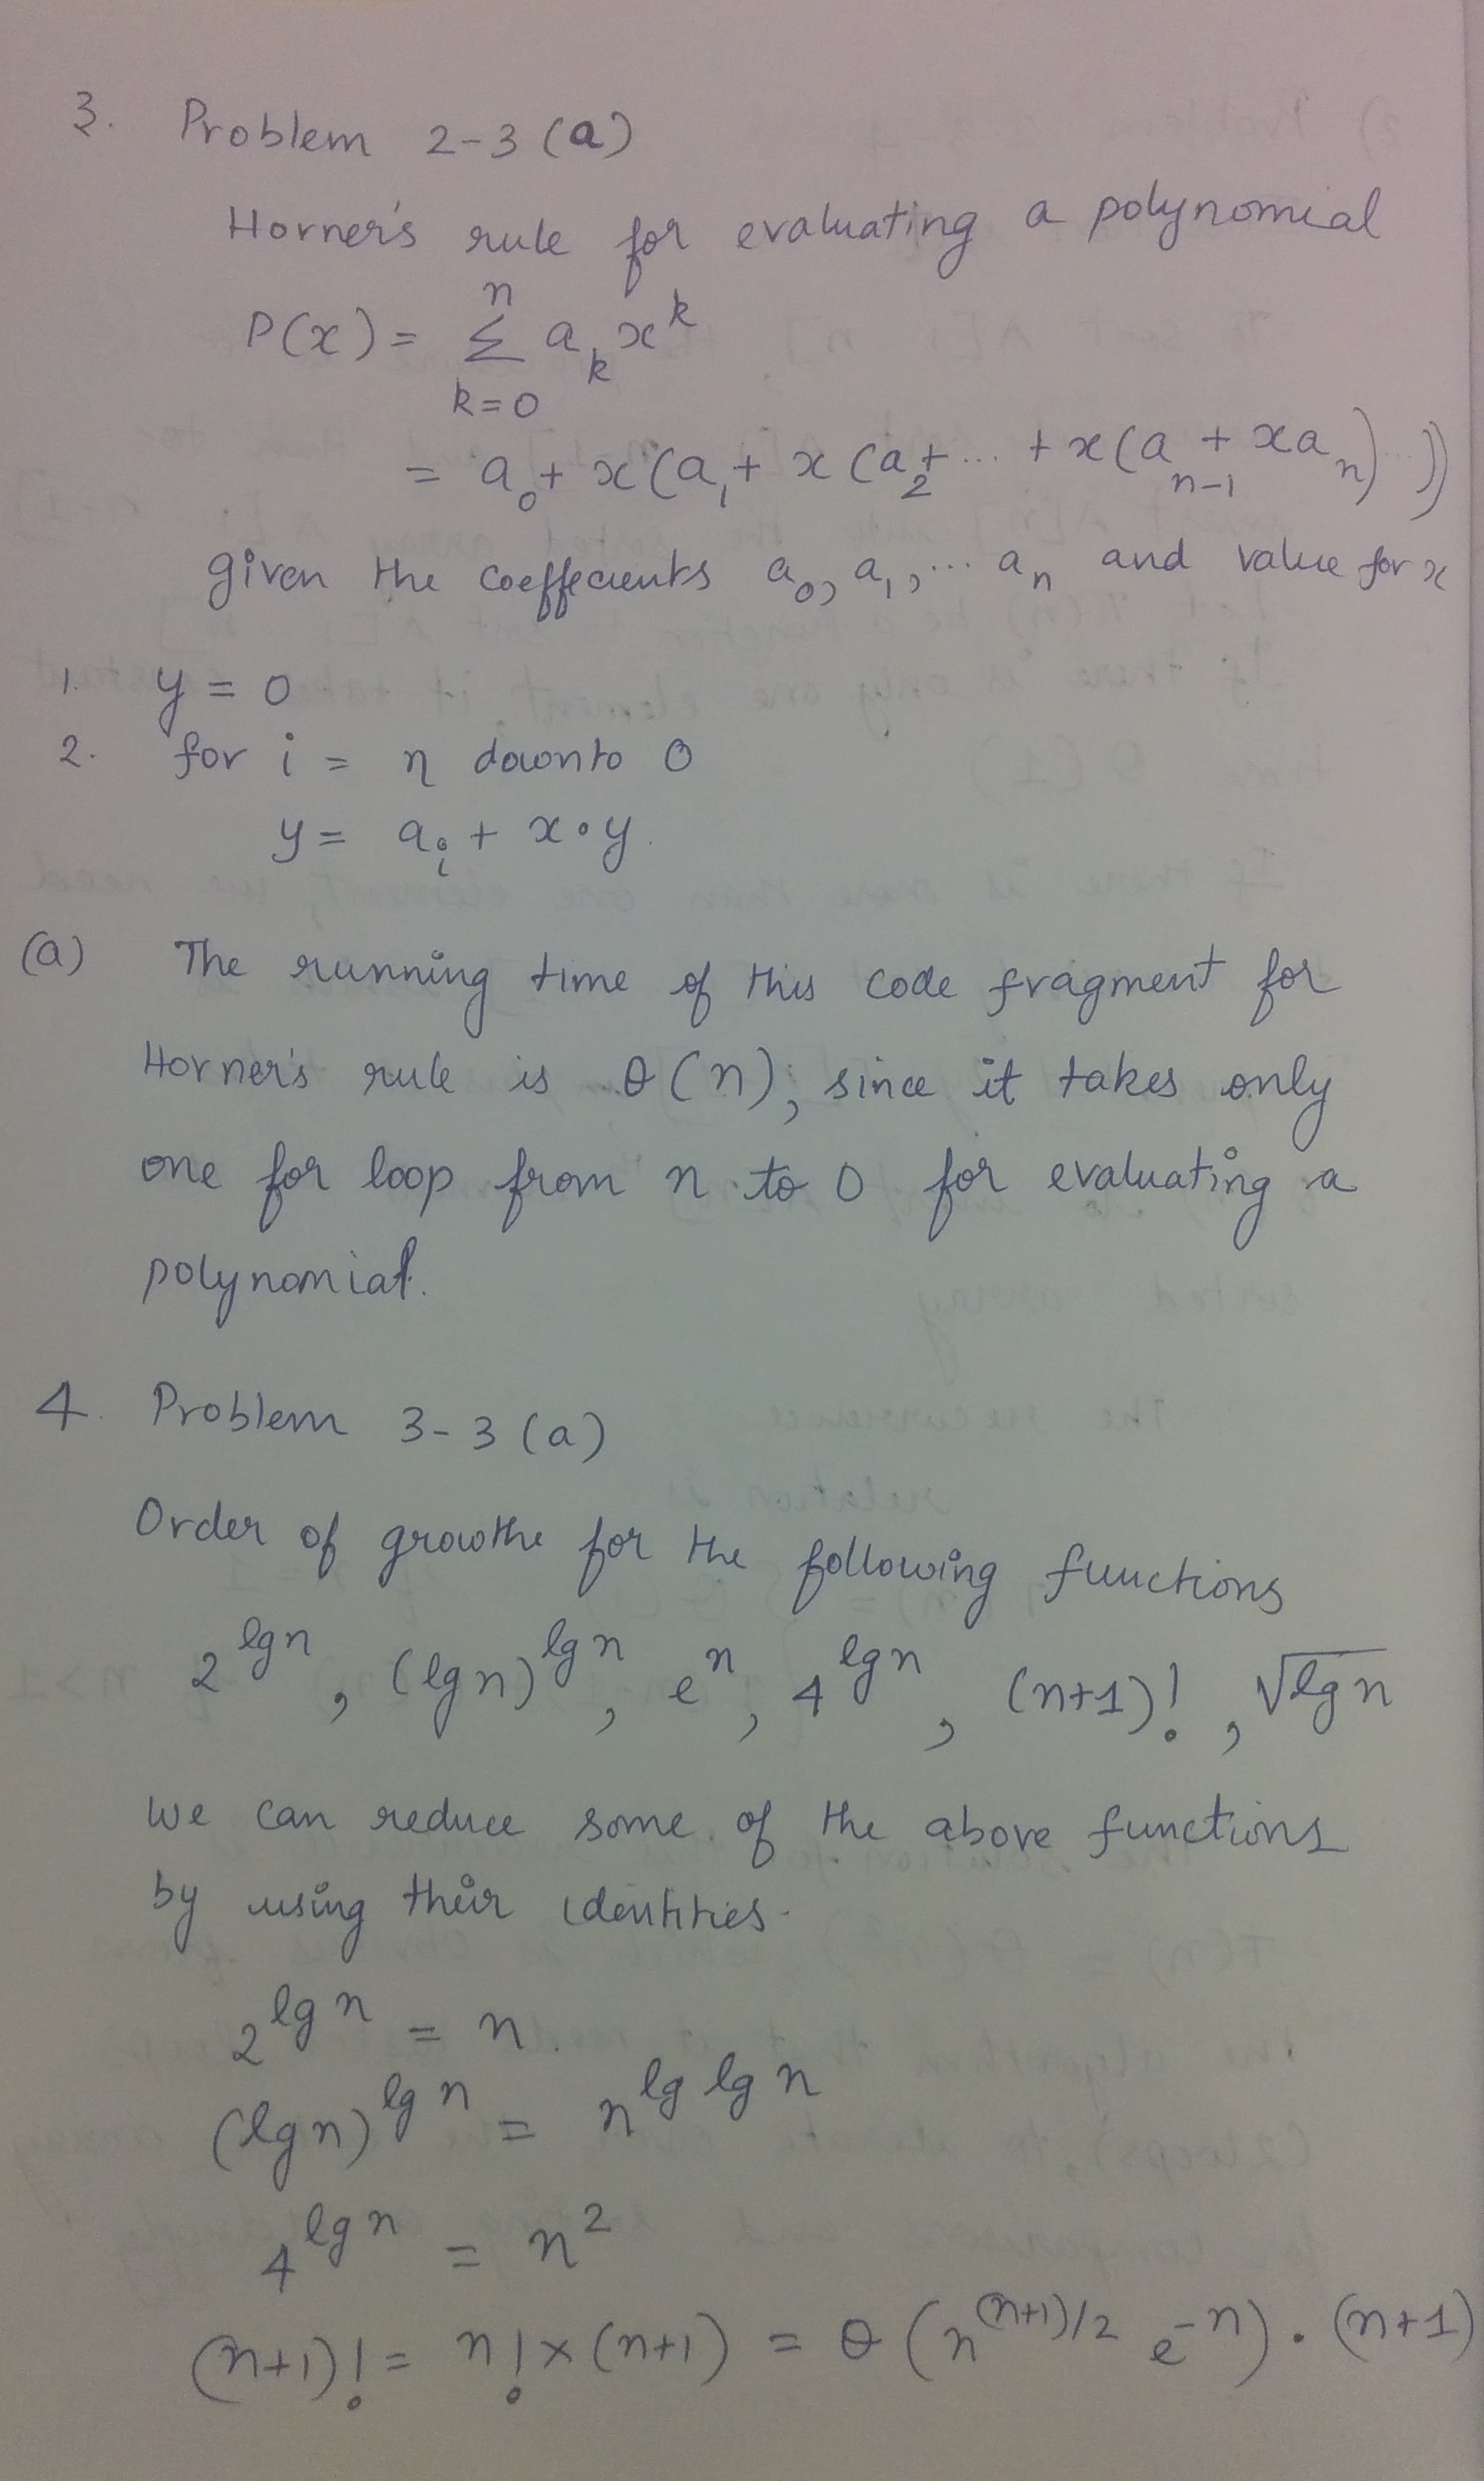 3. Problem 2-3 (a)
Horner's rule for evaluating a polynomial
P(x) = n Σ k=0 a_k x^k
= a_0 + x(a_1 + x(a_2 + ... + x(a_{n-1} + xa_n) ... ))
given the coeffecients a_0, a_1, ... a_n and value for x
1. y = 0
2. for i = n downto 0
y = a_i + x·y.
(a) The running time of this code fragment for
Horner's rule is θ(n), since it takes only
one for loop from n to 0 for evaluating a
polynomial.
4. Problem 3-3 (a)
Order of growthe for the following functions
2^{lg n}, (lg n)^{lg n}, e^n, 4^{lg n}, (n+1)!, √lg n
we can reduce some of the above functions
by using their identities.
2^{lg n} = n.
(lg n)^{lg n} = n^{lg lg n}
4^{lg n} = n^2
(n+1)! = n! × (n+1) = θ(n^{(n+1)/2} e^{-n}) · (n+1)